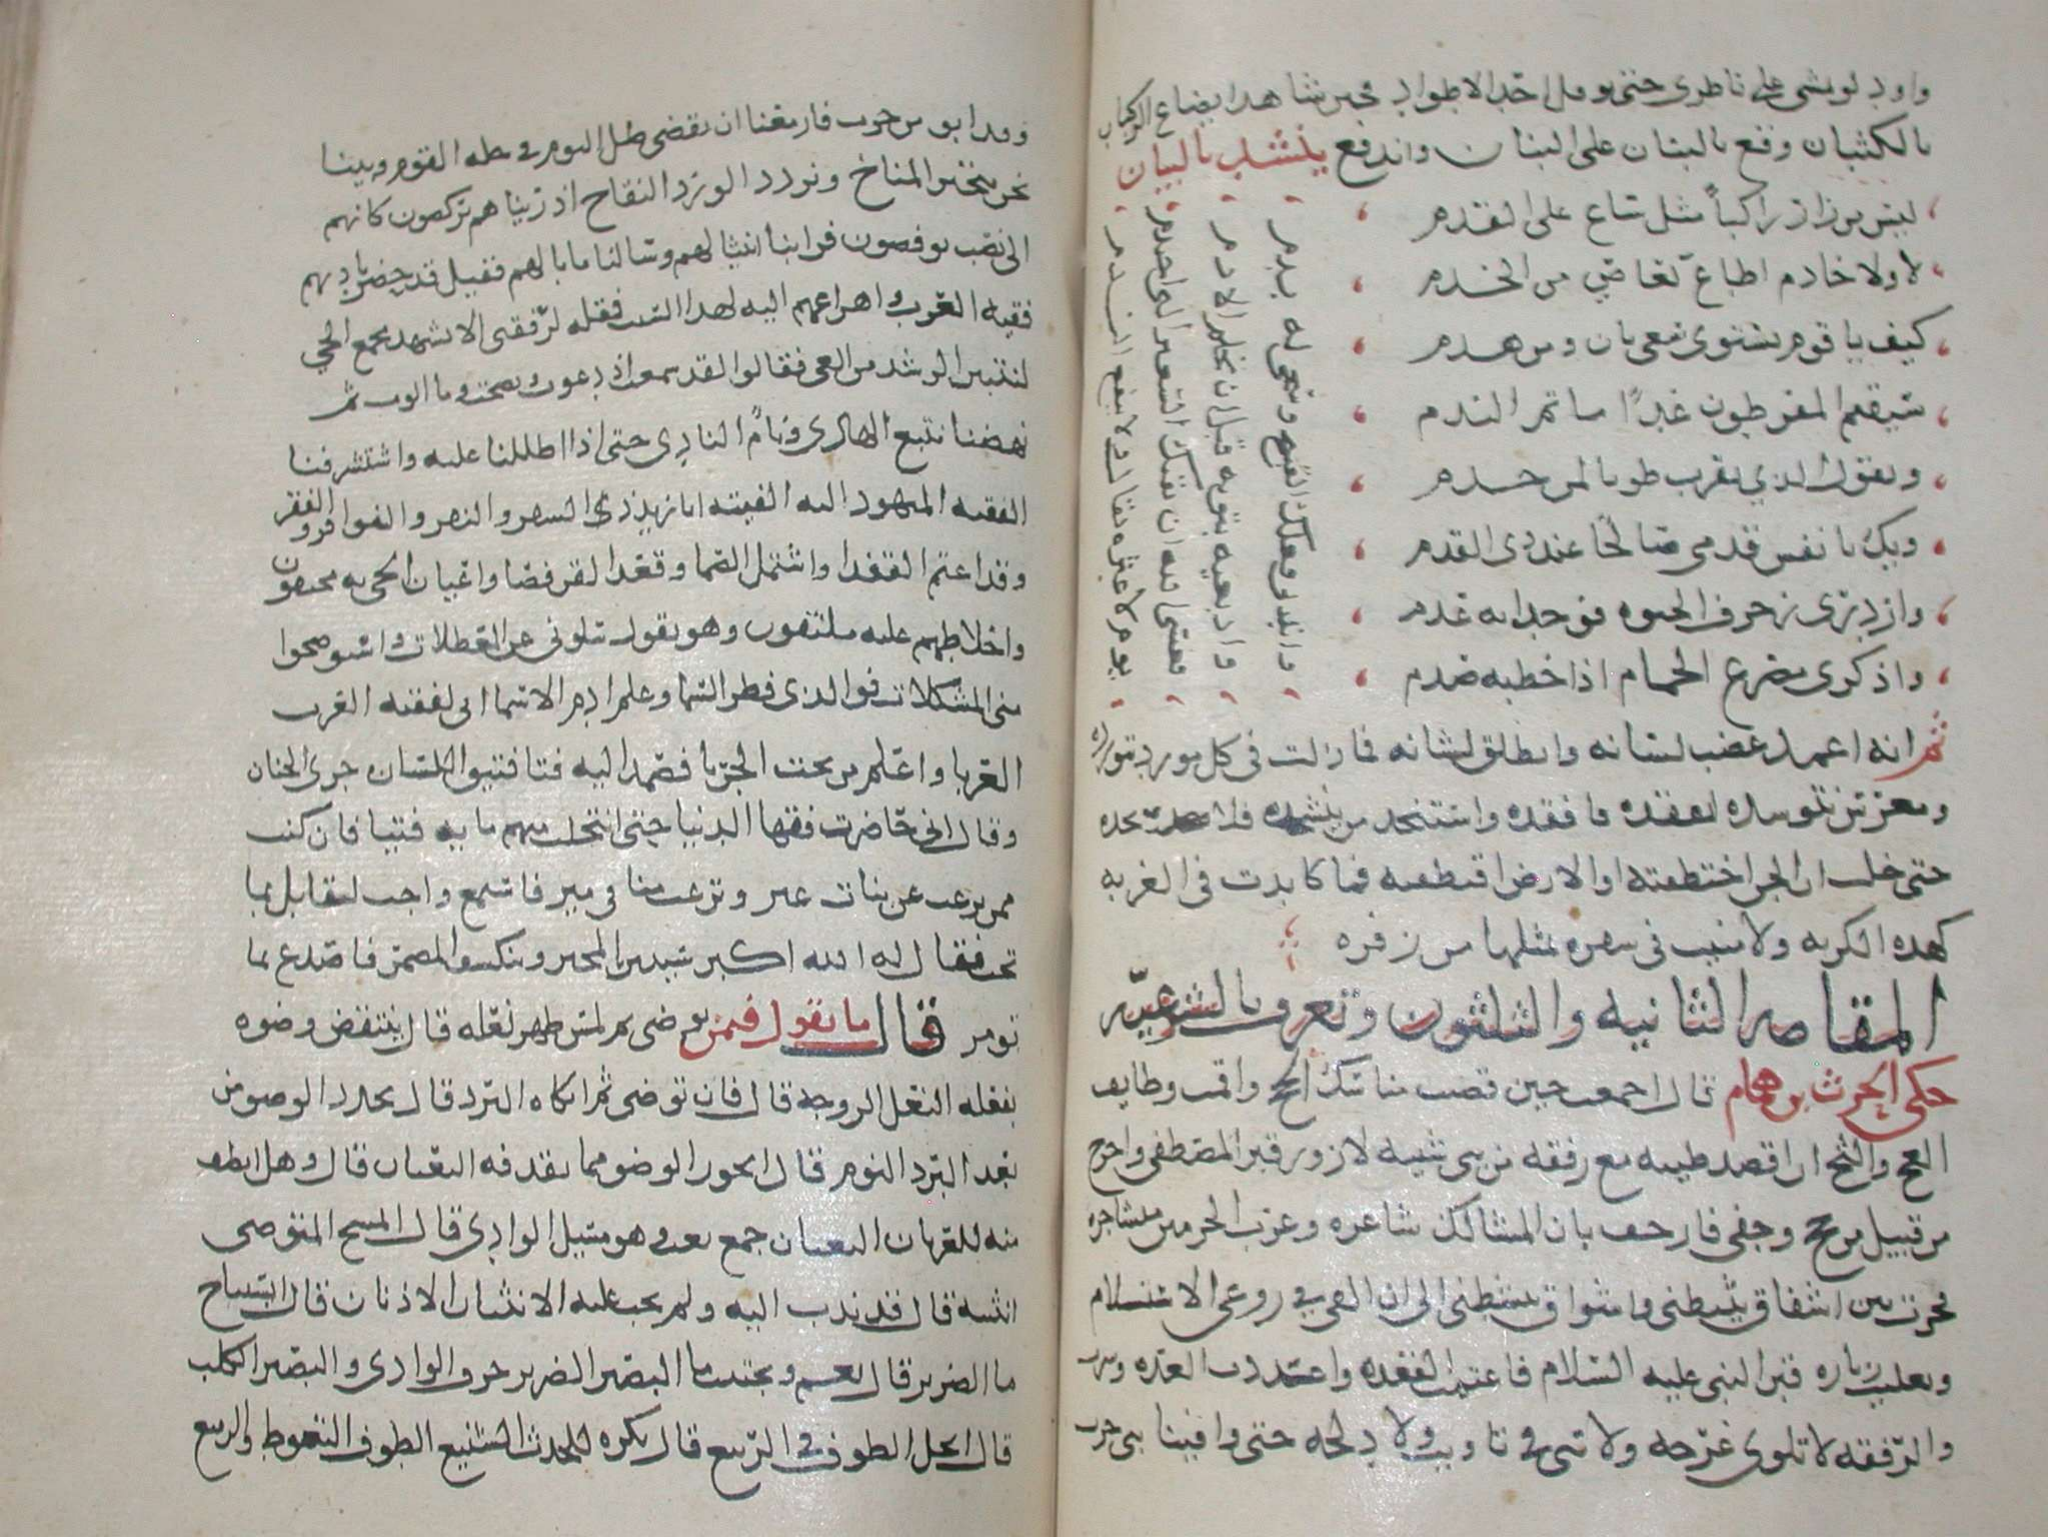 واود لو يمشي على ناظري حتى يوصل احد الاطواد فحين شاهد ايضاع الركاب
بالكثبان وقع بالبنان على البنان واندفع ينشد بالبيان
ليس من زار راكباً مثل ساع على القدم
لا ولا خادم اطاع كعاصي من الخدم
كيف يا قوم يستوي سعي بان ومن هدم
سيقيم المفرطون غداً ماتم الندم
ويقول الذي تقرب طوبا لمن خدم
ويك يا نفس قدمي صالحًا عند ذي القدم
وازدري زخرف الحيوه فوجدانه عدم
واذكري مصرع الحمام اذا خطبه صدم
واندبي فعلك القبيح وسحي له بدم
وادبغيه بتوبه قبل ان يحلم الادم
فعسى الله ان يقيك السعير الذي احتدم
يوم لا عثره تقال ولا ينفع الندم
ثم انه اغمد عضب لسانه وانطلق لشانه فما زلت في كل مورد نورده
ومعرس نتوسده اتفقده فافقده واستنجد من ينشده فلا يجده
حتى خلت ان الجن اختطفته او الارض اقتطفته فما كابدت في الغربه
كهذه الكربه ولا منيت في سفره بمثلها من زفره
المقامه الثانيه والثلثون وتعرف بالشرعيه
حكى الحرث بن همام قال اجمعت حين قضيت مناسك الحج واقمت وظايف
العج والثج ان اقصد طيبه مع رفقه من بني شيبه لازور قبر المصطفى واخرج
من قبيل من حج وجفى فارجف بان المسالك شاغره وعرب الحرمين متشاجره
فحرت بين اشفاق يثبطني واشواق ينشطني الى ان القي في روعي الاستسلام
وتغليب زياره قبر النبي عليه السلام فاعتمت القعده واعددت العده وسرت
والرفقه لا تلوي على عرجه ولا تني في تاويب ولا دلجه حتى وافينا بني حرب
وقد ابو من حرب فازمعنا ان نقضي ظل اليوم في حله القوم وبينا
نحن نتخير المناخ ونرود الورد النقاخ اذ رايناهم يركضون كانهم
الى نصب يوفضون فرابنا انثيالهم وسالنا ما بالهم فقيل قد حضر ناديهم
فقيه العرب واهراعهم اليه لهذا السبب فقلت لرفقتي الا نشهد مجمع الحي
لنتبين الرشد من الغي فقالوا لقد سمعت اذ دعوت ونصحت وما الوت ثم
نهضنا نتبع الهادي ونام النادي حتى اذا اظللنا عليه واستشرفنا
الفقيه المنهود اليه الفيته ابا زيد ذي السقر والبقر والفواقر والفقر
وقد اعتم القفدا واشتمل الصما وقعد القرفصا واعيان الحي به محتفون
واخلاطهم عليه ملتفون وهو يقول سلوني عن المعضلات واستوضحوا
مني المشكلات فوالذي فطر السما وعلم ادم الاسما اني لفقيه العرب
العربا واعلم من تحت الجربا فصمد اليه فتا فتيق اللسان جري الجنان
وقال اني حاضرت فقها الدنيا حتى انتخلت منهم مايه فتيا فان كنت
ممن يرغب عن بنات غير وترغب منا في مير فاستمع واجب لتقابل بما
تجب فقال له الله اكبر سيبين المخبر وينكشف المضمر فاصدع بما
تومر قال ما تقول فيمن توضى ثم لمس ظهر نعله قال ينتقض وضوه
بفعله النعل الزوجه قال فان توضى ثم اتكاه البرد قال يجدد الوضو من
بعد البرد النوم قال ايجوز الوضو مما يقذفه الثعبان قال وهل انظف
منه للعربان الثعبان جمع ثعب وهو مسيل الوادي قال ايمسح المتوضى
انثييه قال قد ندب اليه ولم يجب عليه الانثيان الاذنان قال ايستباح
ما الضرير قال نعم ويجتنب ما البصير الضرير حرف الوادي والبصير الكلب
قال ايحل الطوف في الربيع قال يكره للحدث الشنيع الطوف التغوط والربيع